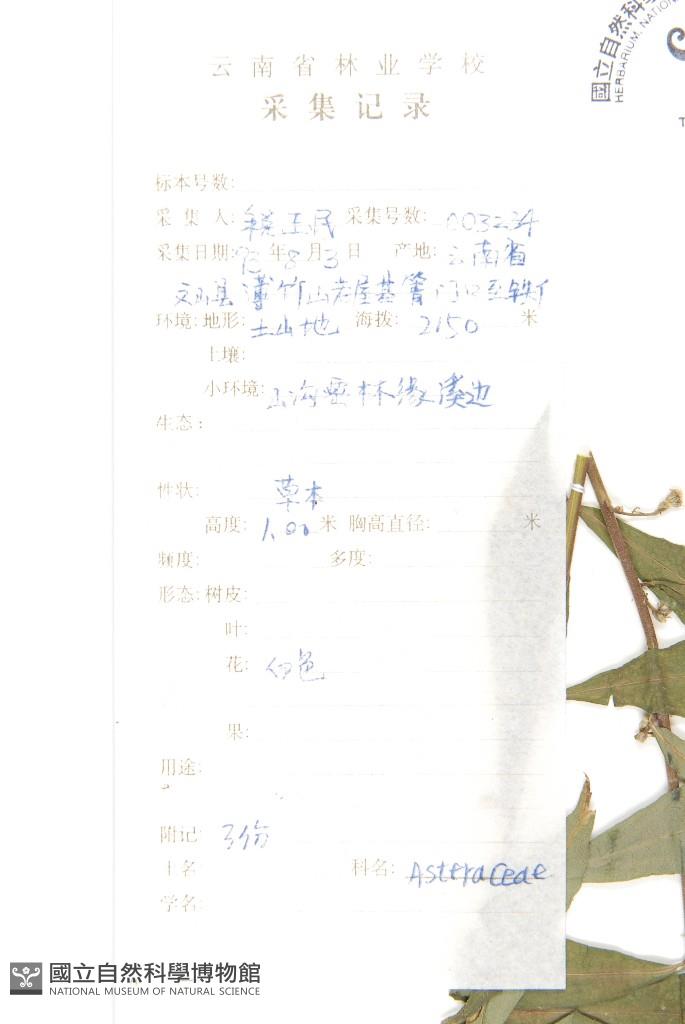 國立自然科學
HERBARIUM, NATION
云南省林业学校
采集记录
标本号数:
采集人: 税玉民 采集号数: 003234
采集日期: 93年8月3日 产地: 云南省
文山县薄竹山老屋基箐门口至铁厂
环境: 地形: 土山地 海拨: 2150 米
土壤:
小环境: 山沟 林缘溪边
生态:
性状: 草本
高度: 1.00 米 胸高直径: 米
频度: 多度:
形态: 树皮:
叶:
花: 白色
果:
用途:
附记: 3份
土名 科名: Asteraceae
学名:
國立自然科學博物館
NATIONAL MUSEUM OF NATURAL SCIENCE